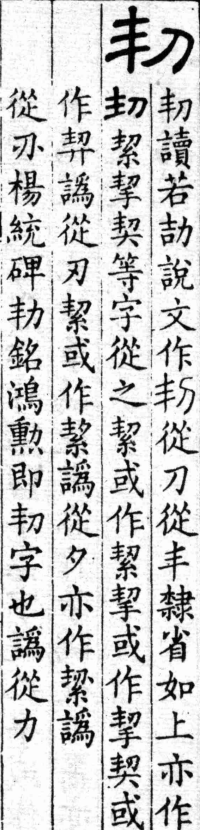 㓞
㓞讀若㓞說文作㓞從刀從丰隸省如上亦作
㓞絜挈契等字從之絜或作絜挈或作挈契或
作契譌從刃絜或作絜譌從夕亦作絜譌
從刅楊統碑㓞銘鴻勲即㓞字也譌從力